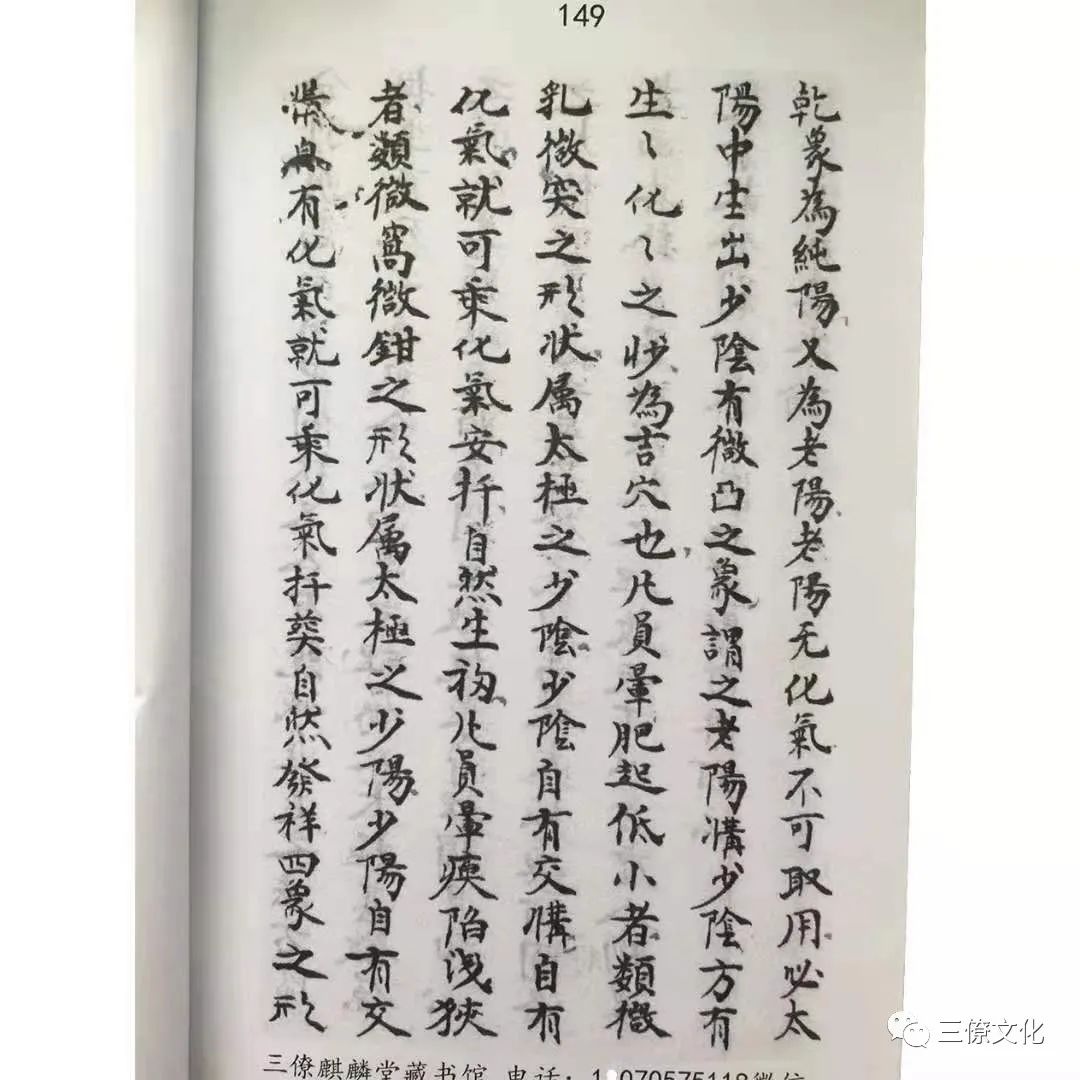 149
乾象為純陽又為老陽老陽无化氣不可取用必太
陽中生出少陰有微凸之象謂之老陽媾少陰方有
生〻化〻之妙為吉穴也凡員暈肥起低小者類微
乳微突之形状属太極之少陰少陰自有交媾自有
化氣就可乘化氣安扦自然生初凡員暈瘼陷浅狹
者類微窩微鉗之形状属太極之少陽少陽自有交
有化氣就可乘化氣扦葬自然發祥四象之形
三僚麒麟堂藏书馆 电话：
三僚文化